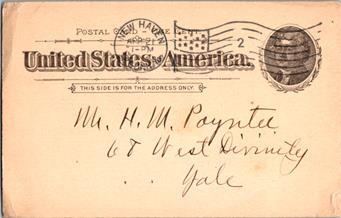 POSTAL CARD - ONE CENT
United States of America.
NEW HAVEN
APR 21
1-PM
2
THIS SIDE IS FOR THE ADDRESS ONLY.
Mr. H. M. Poynter
68 West Divinity
Yale